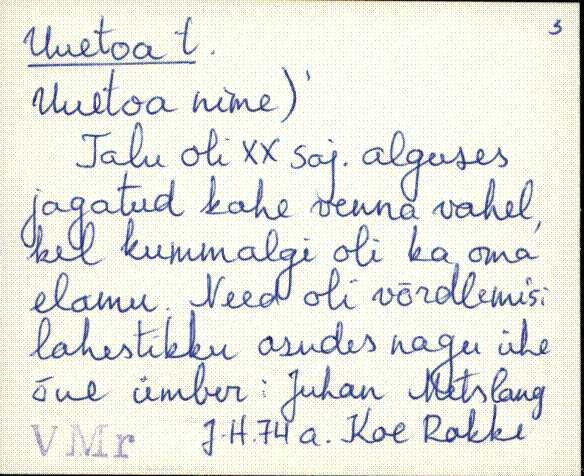 3
Uuetoa t.
Uuetoa nime)'
Talu oli XX saj. alguses
jagatud kahe venna vahel,
kel kummalgi oli ka oma
elamu. Need oli võrdlemisi
lahestikku asudes nagu ühe
õue ümber: Juhan Metslang
VMr J.H. 74 a. Koe Rakke